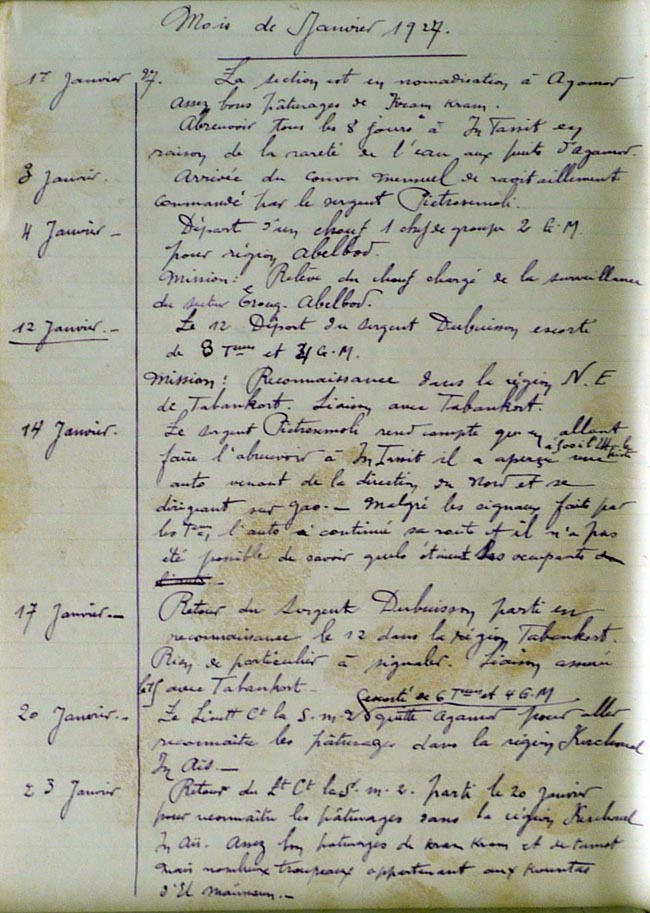 Mois de Janvier 1927.
1er Janvier 27. La section est en nomadisation à Agamor
Assez bons pâturages de Kram Kram.
Abreuvoir tous les 8 jours à In Tassit en
raison de la rareté de l'eau aux puits d'Agamor.
3 Janvier. Arrivée du convoi mensuel de ravitaillement
commandé par le sergent Pietrosemoli.
4 Janvier - Départ d'un chouf 1 chef de groupe 2 G.M.
pour région Abelbod.
Mission: Relève du chouf chargé de la surveillance
du secteur Eroug-Abelbod.
12 Janvier. - Le 12 Départ du sergent Dubuisson escorte
de 8 Teurs et 4 G.M.
Mission: Reconnaissance dans la région N.E
de Tabankort. Liaison avec Tabankort.
14 Janvier. Le sergent Pietrosemoli rend compte qu'en allant
faire l'abreuvoir à In Tassit il a aperçu une
auto venant de la direction du Nord et se
dirigeant sur Gao. - Malgré les signaux faits par
les Teurs, l'auto a continué sa route et il n'a pas
été possible de savoir quels étaient les occupants
17 Janvier - Retour du sergent Dubuisson parti en
reconnaissance le 12 dans la région Tabankort.
Rien de particulier à signaler. Liaison assurée
avec Tabankort -
escorté de 6 Teurs et 4 G.M
20 Janvier. - Le Lieutt Ct la S.m.2 quitte Agamor pour aller
reconnaître les pâturages dans la région Kerchouel
In Aïs. -
23 Janvier Retour du Lt Ct la S.m.2. parti le 20 janvier
pour reconnaître les pâturages dans la région Kerchouel
In Aïs. Assez bon pâturages de kram kram et de
mais nombreux troupeaux appartenant aux Kountas
d'El